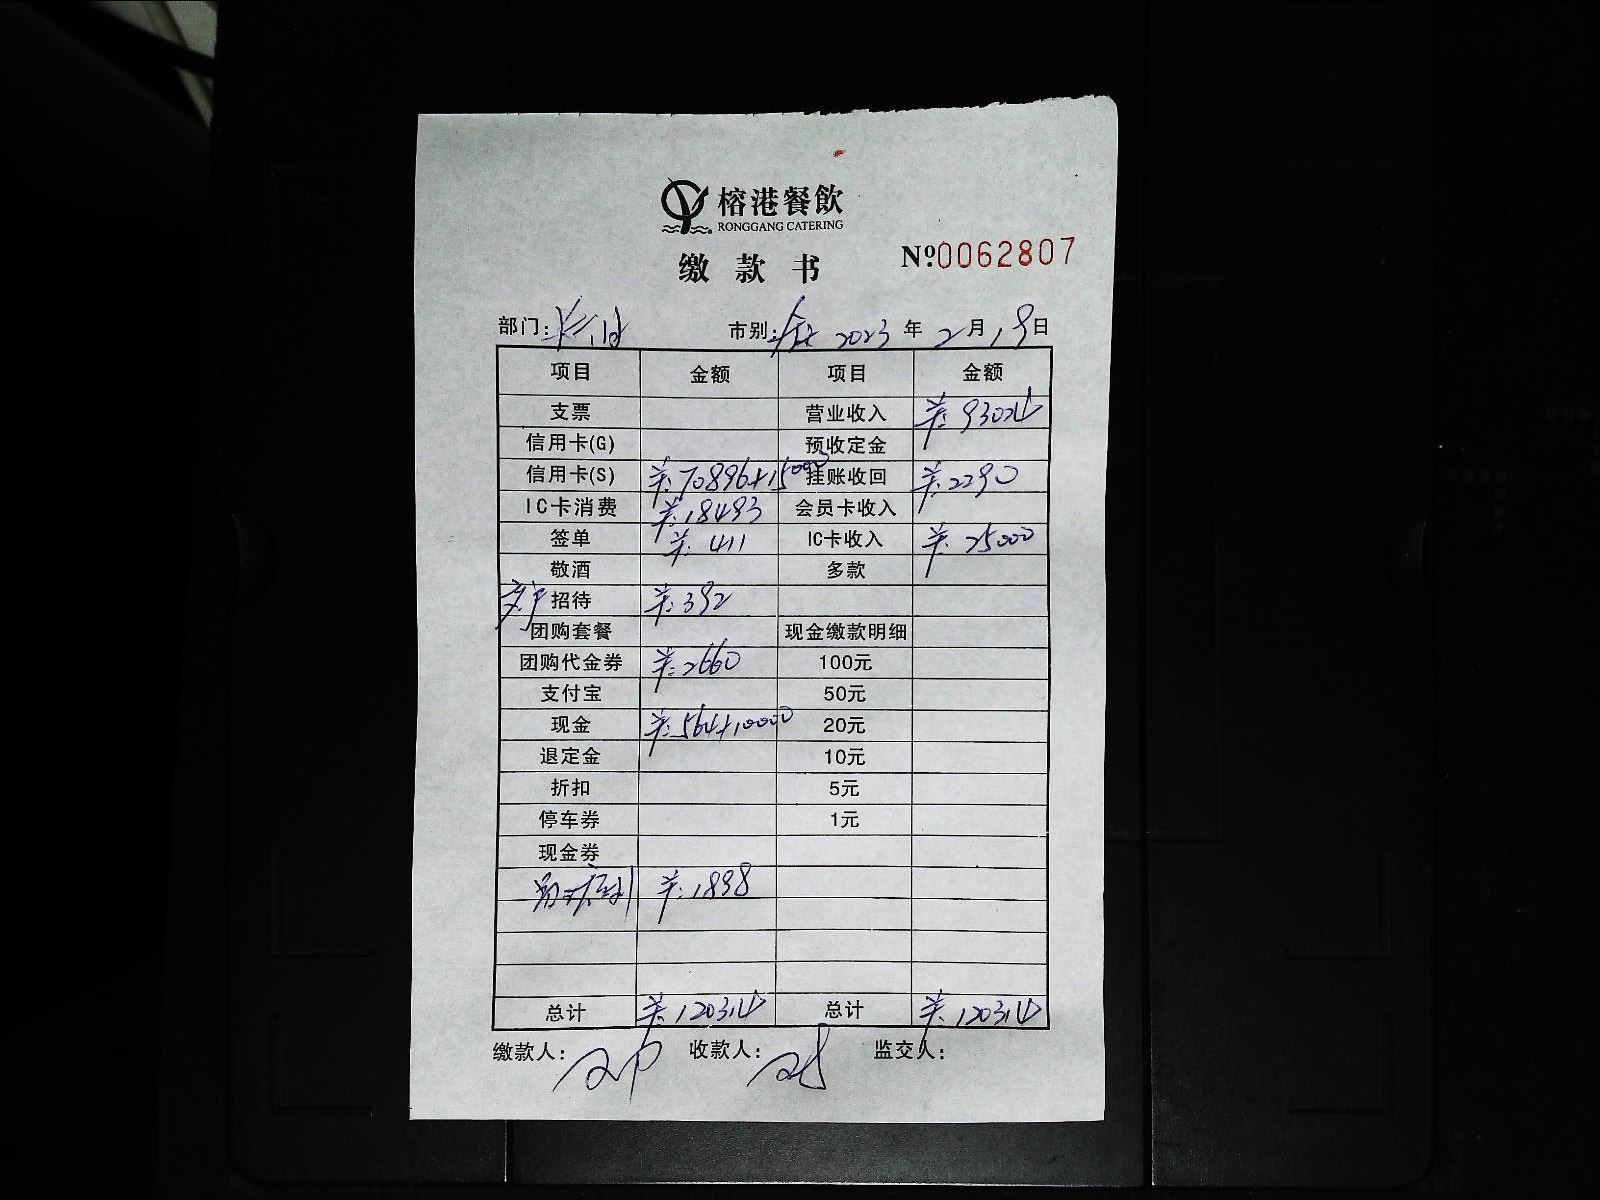 榕港餐飲
RONGGANG CATERING
缴款书
№0062807
部门: 市别: 全天 2023 年 2 月 19 日
项目 金额 项目 金额
支票 营业收入 ¥:93024
信用卡(G) 预收定金
信用卡(S) ¥:70896+15000 挂账收回 ¥:2290
IC卡消费 ¥:18493 会员卡收入
签单 ¥:411 IC卡收入 ¥:25000
敬酒 多款
招待 ¥:392
团购套餐 现金缴款明细
团购代金券 ¥:2660 100元
支付宝 50元
现金 ¥:564+10000 20元
退定金 10元
折扣 5元
停车券 1元
现金券
¥:1898
总计 ¥:120314 总计 ¥:120314
缴款人: 收款人: 监交人: